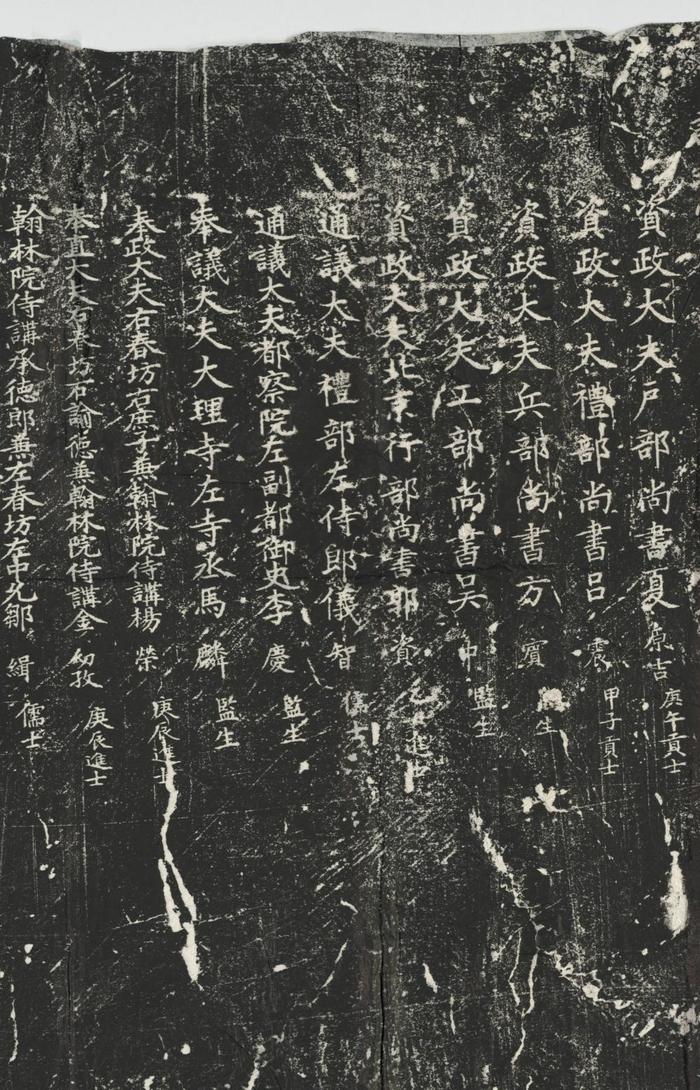 資政大夫戶部尚書夏原吉庚午貢士
資政大夫禮部尚書呂震甲子貢士
資政大夫兵部尚書方賓監生
資政大夫工部尚書吳中監生
資政大夫北京行部尚書郭資乙丑進士
通議大夫禮部左侍郎儀智儒士
通議大夫都察院左副都御史李慶監生
奉議大夫大理寺左寺丞馬麟監生
奉政大夫右春坊右庶子兼翰林院侍講楊榮庚辰進士
奉直大夫右春坊右諭德兼翰林院侍講金幼孜庚辰進士
翰林院侍講承德郎兼左春坊左中允鄒緝儒士